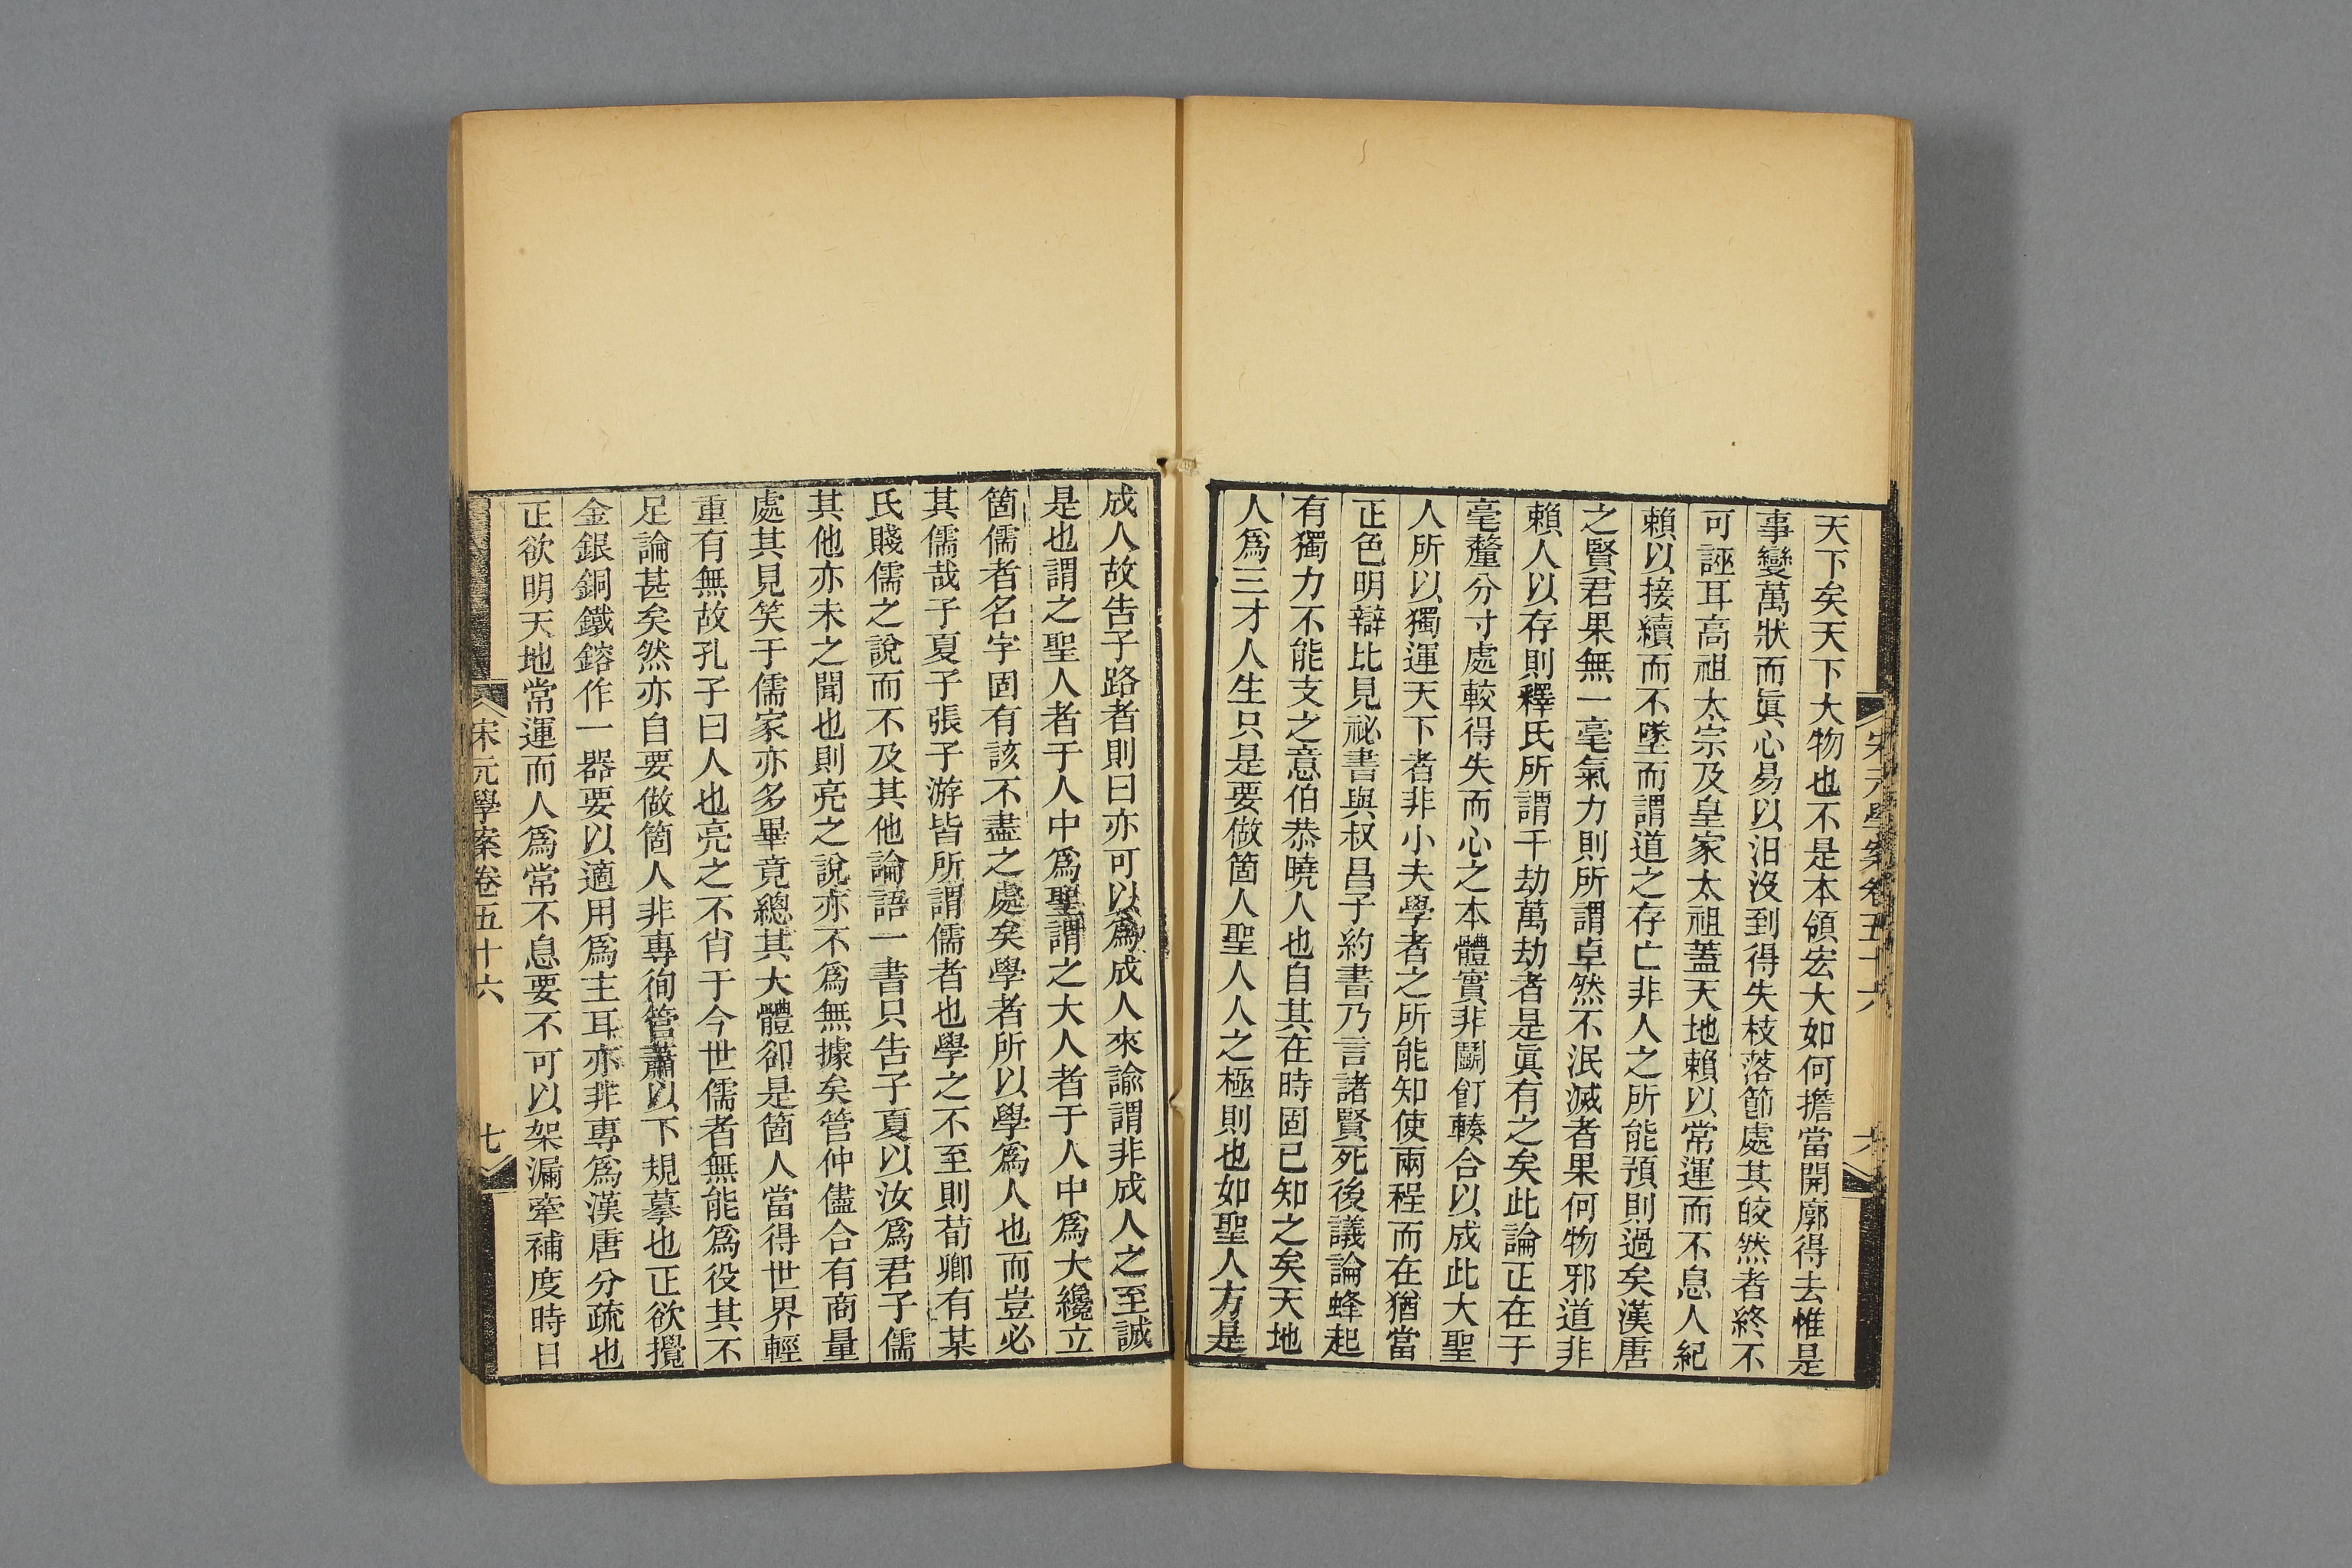 宋元學案卷五十六
六
天下矣天下大物也不是本領宏大如何擔當開廓得去惟是
事變萬狀而眞心易以汨沒到得失枝落節處其皎然者終不
可誣耳高祖太宗及皇家太祖蓋天地賴以常運而不息人紀
賴以接續而不墜而謂道之存亡非人之所能預則過矣漢唐
之賢君果無一毫氣力則所謂卓然不泯滅者果何物邪道非
賴人以存則釋氏所謂千劫萬劫者是眞有之矣此論正在于
毫釐分寸處較得失而心之本體實非鬭飣輳合以成此大聖
人所以獨運天下者非小夫學者之所能知使兩程而在猶當
正色明辯比見祕書與叔昌子約書乃言諸賢死後議論蜂起
有獨力不能支之意伯恭曉人也自其在時固已知之矣天地
人爲三才人生只是要做箇人聖人人之極則也如聖人方是
成人故告子路者則曰亦可以爲成人來諭謂非成人之至誠
是也謂之聖人者于人中爲聖謂之大人者于人中爲大纔立
箇儒者名字固有該不盡之處矣學者所以學爲人也而豈必
其儒哉子夏子張子游皆所謂儒者也學之不至則荀卿有某
氏賤儒之說而不及其他論語一書只告子夏以汝爲君子儒
其他亦未之聞也則亮之說亦不爲無據矣管仲儘合有商量
處其見笑于儒家亦多畢竟總其大體卻是箇人當得世界輕
重有無故孔子曰人也亮之不肖于今世儒者無能爲役其不
足論甚矣然亦自要做箇人非專徇管蕭以下規摹也正欲攪
金銀銅鐵鎔作一器要以適用爲主耳亦非專爲漢唐分疏也
正欲明天地常運而人爲常不息要不可以架漏牽補度時日
宋元學案卷五十六
七